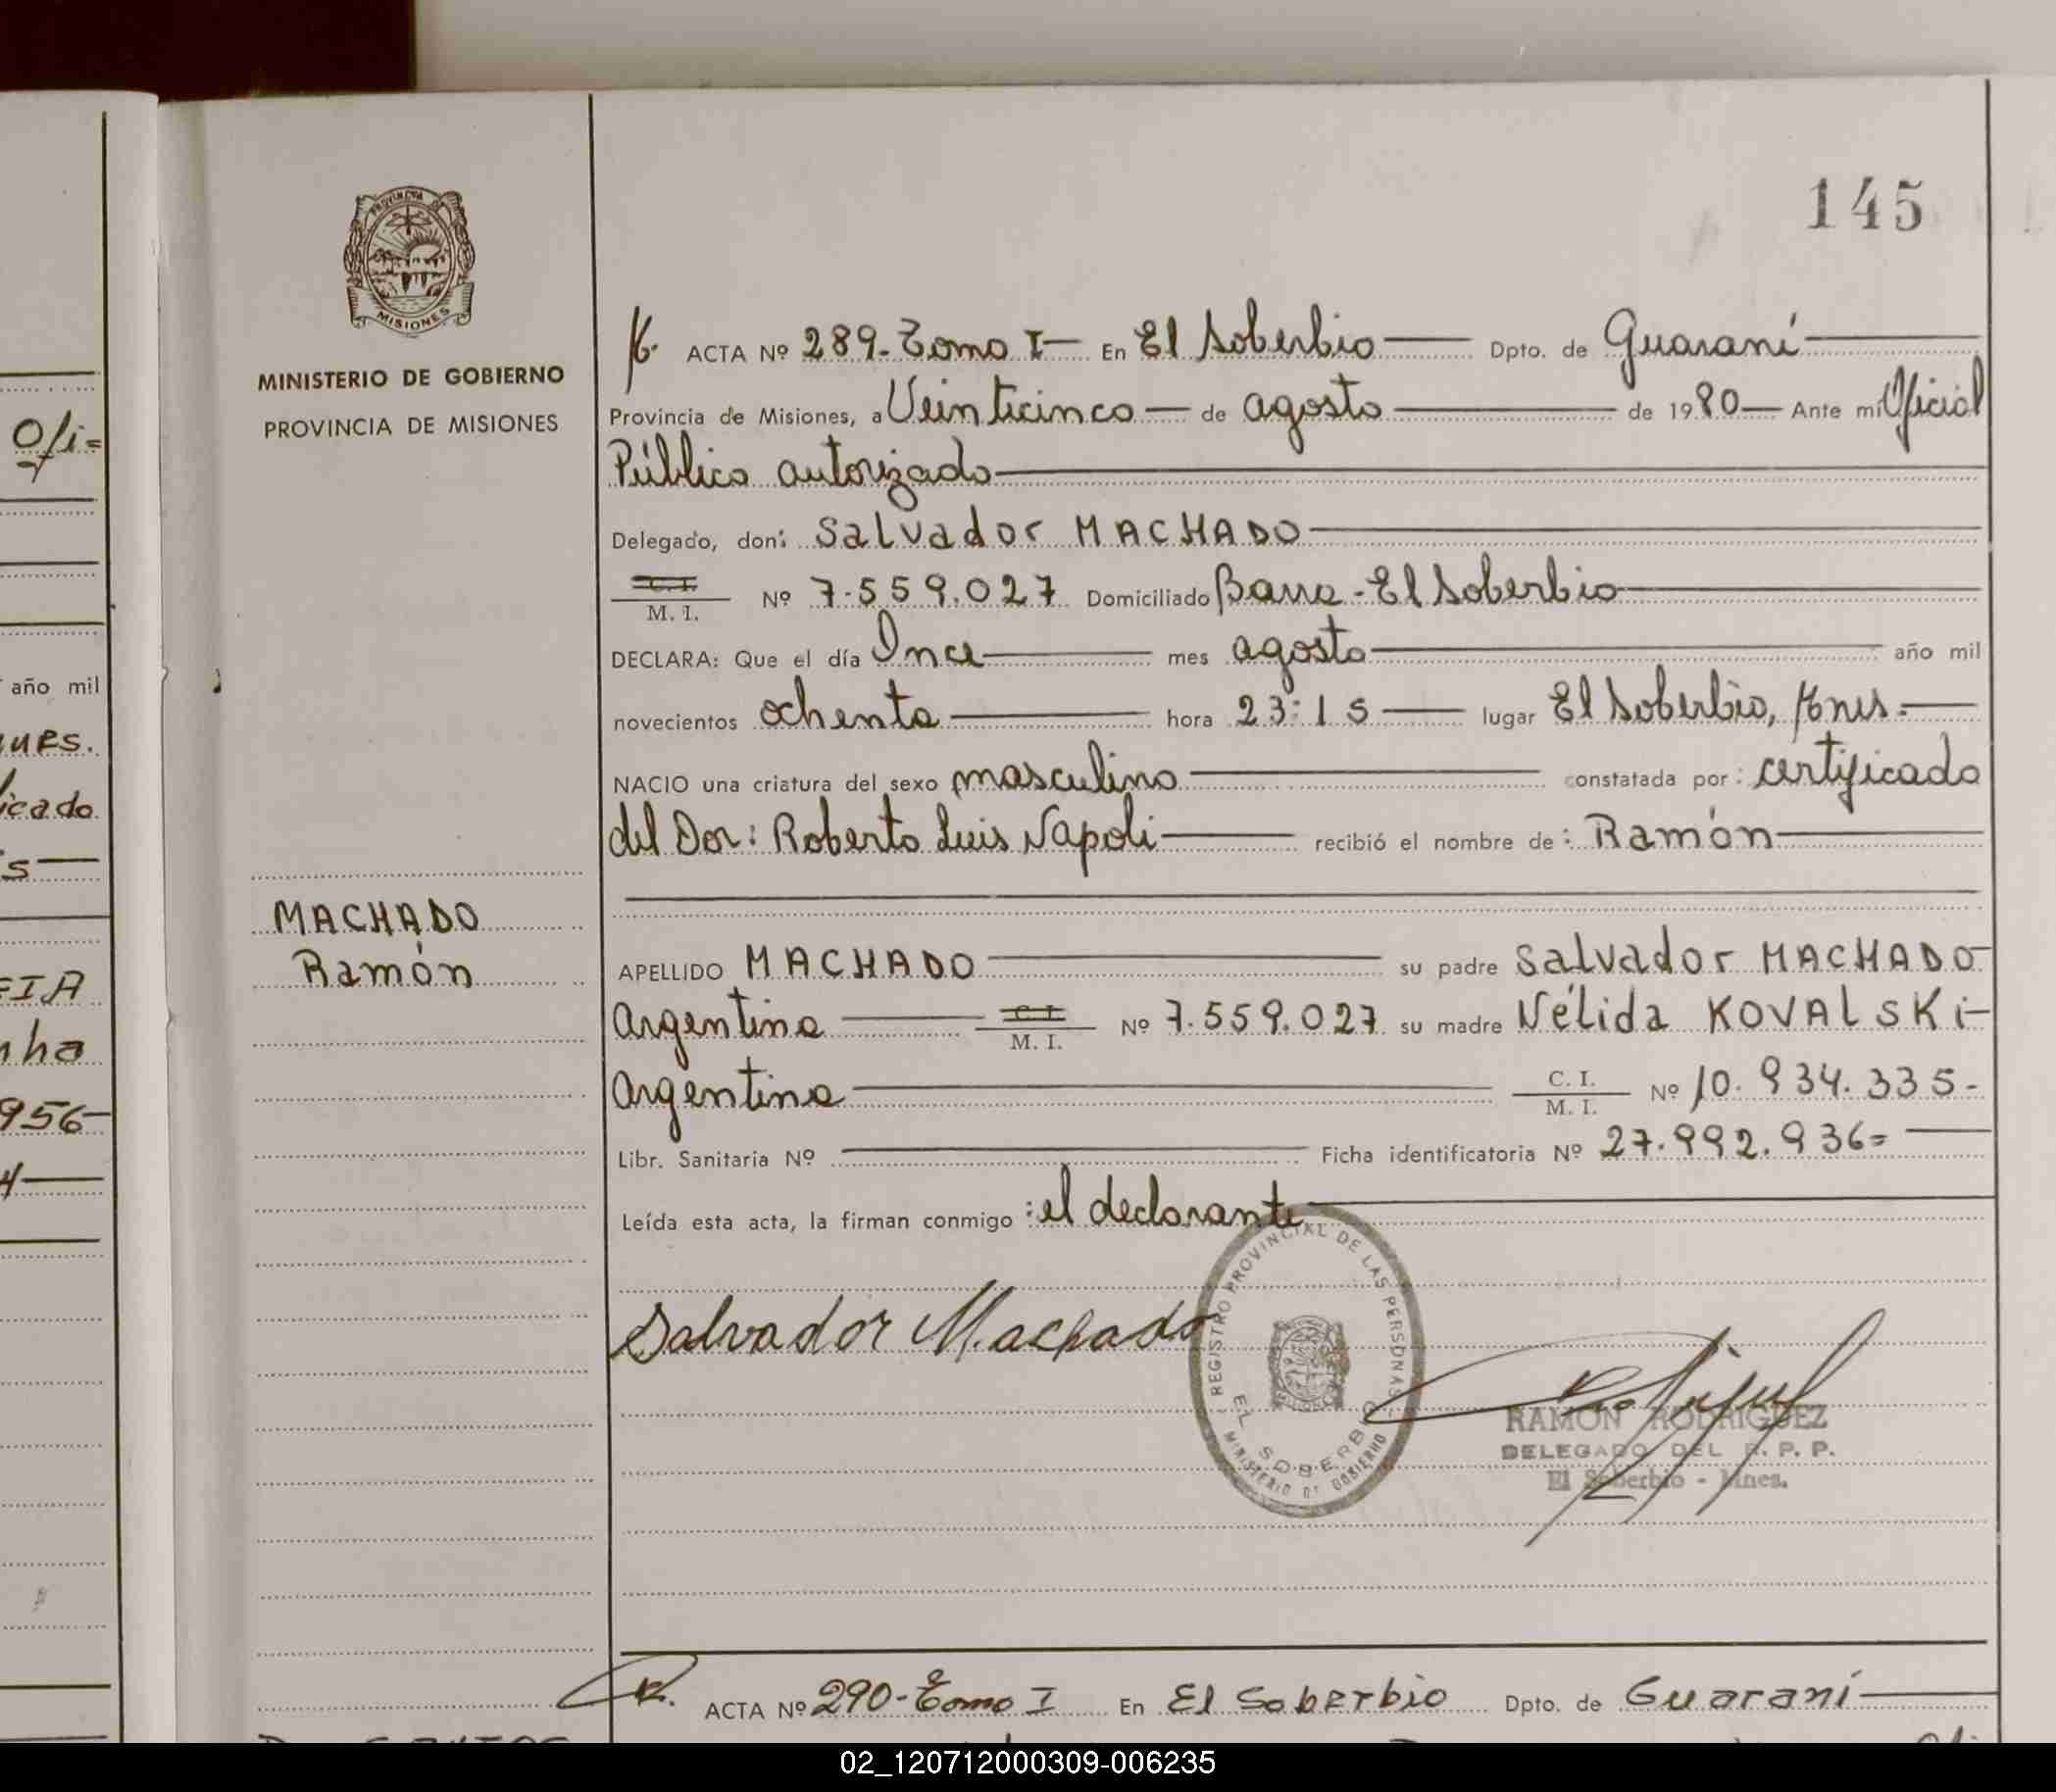 145
PROVINCIA DE
MISIONES
MINISTERIO DE GOBIERNO
PROVINCIA DE MISIONES
MACHADO
Ramón
ACTA Nº 289- Tomo I- En El Soberbio Dpto. de Guaraní
Provincia de Misiones, a Veinticinco de agosto de 1980 Ante mi Oficial
Público autorizado
Delegado, don: Salvador MACHADO
C. I. M. I. Nº 7.559.027 Domiciliado Barra - El Soberbio
DECLARA: Que el día Once mes agosto año mil
novecientos ochenta hora 23:15 lugar El Soberbio, Mnes.
NACIO una criatura del sexo masculino constatada por: certificado
del Dor: Roberto Luis Napoli recibió el nombre de: Ramón
APELLIDO MACHADO su padre Salvador MACHADO
Argentino C. I. M. I. Nº 7.559.027 su madre Nélida KOVALSKi
Argentina C. I. M. I. Nº 10.934.335-
Libr. Sanitaria Nº Ficha identificatoria Nº 27.992.936=
Leída esta acta, la firman conmigo: el declarante
Salvador Machado
REGISTRO PROVINCIAL DE LAS PERSONAS
EL SOBERBIO
MINISTERIO DE GOBIERNO
RAMON RODRIGUEZ
DELEGADO DEL R. P. P.
El Soberbio - Mnes.
ACTA Nº 290- Tomo I En El Soberbio Dpto. de Guaraní
Ofi=
año mil
icado
nha
956-
02_120712000309-006235